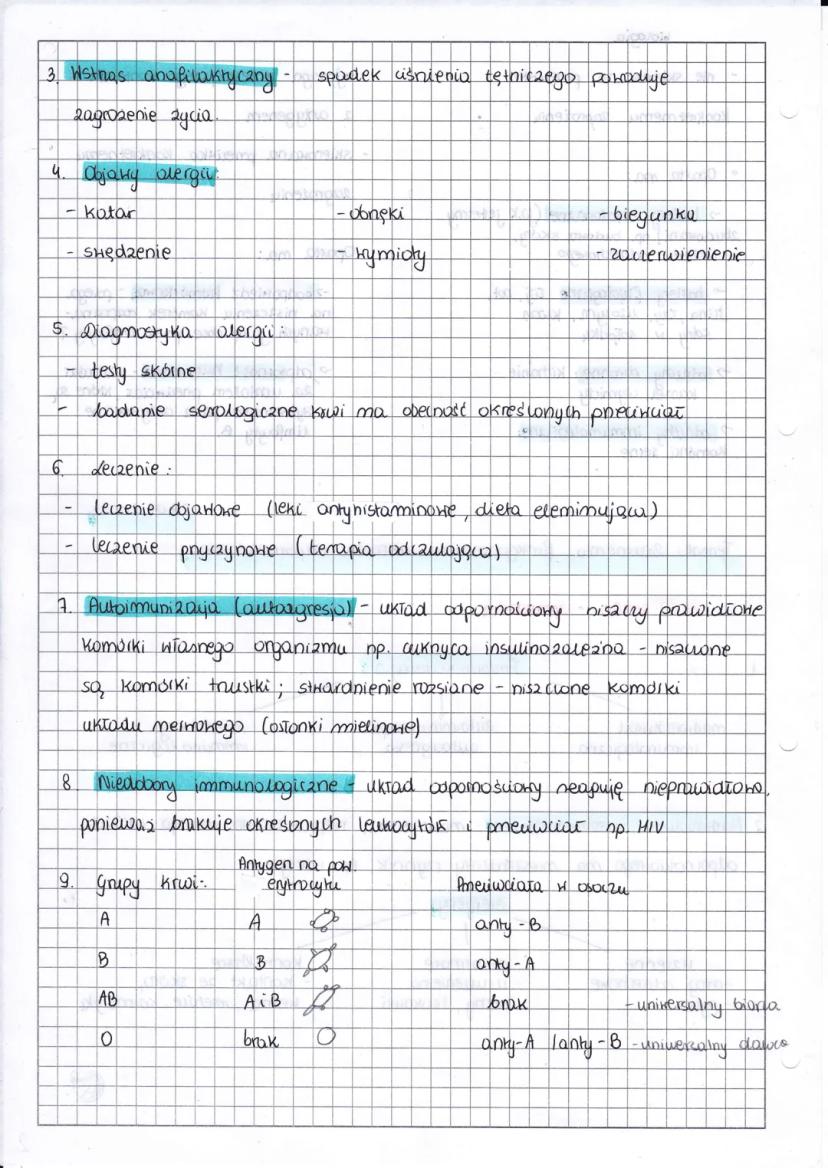 3. Wstrząs anafilaktyczny - spadek ciśnienia tętniczego powoduje
zagrożenie życia.
4. Objawy alergii:
- katar - obrzęki - biegunka
- swędzenie - wymioty - zaczerwienienie
5. Diagnostyka alergii:
- testy skórne
- badanie serologiczne krwi na obecność określonych przeciwciał
6. Leczenie:
- leczenie objawowe (leki antyhistaminowe, dieta eleminująca)
- leczenie przyczynowe (terapia odczulająca)
7. Autoimunizacja (autoagresja) - układ odpornościowy niszczy prawidłowe
komórki własnego organizmu np. cukrzyca insulinozależna - niszczone
są komórki trzustki; stwardnienie rozsiane - niszczone komórki
układu nerwowego (osłonki mielinowe)
8. Niedobory immunologiczne - układ odpornościowy reaguję nieprawidłowo,
ponieważ brakuje określonych leukocytów i przeciwciał np. HIV
9. Grupy krwi: Antygen na pow. erytrocytu Przeciwciała w osoczu
A A anty-B
B B anty-A
AB A i B brak - uniwersalny biorca
0 brak anty-A i anty-B - uniwersalny dawca